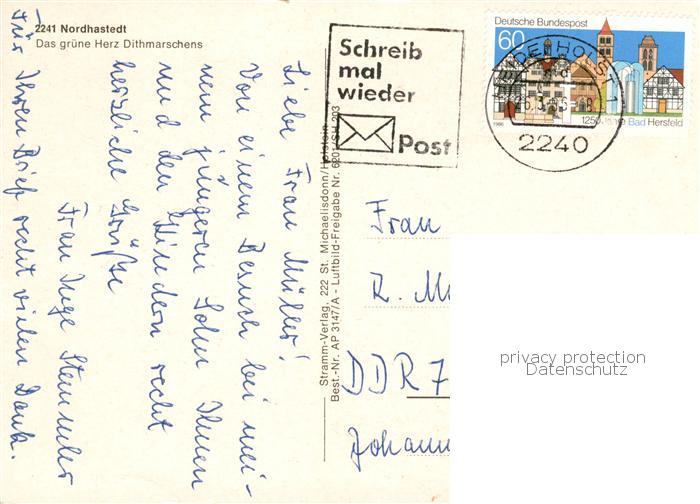 2241 Nordhastedt
Das grüne Herz Dithmarschens
Liebe Frau Müller!
Von einem Besuch bei mei-
nem jüngeren Sohn Ihnen
und den Kindern recht
herzliche Grüße
Frau Inge
Für Ihren Brief recht vielen Dank.
Stramm-Verlag, 222 St. Michaelisdonn/Holstein
Best.-Nr. AP 3147/A - Luftbild-Freigabe Nr. 6201/SH 203
Schreib
mal
wieder
Post
2240
Deutsche Bundespost
60
1250 Bad Hersfeld
1986
Frau
R. M
DDR 7
Johann
privacy protection
Datenschutz